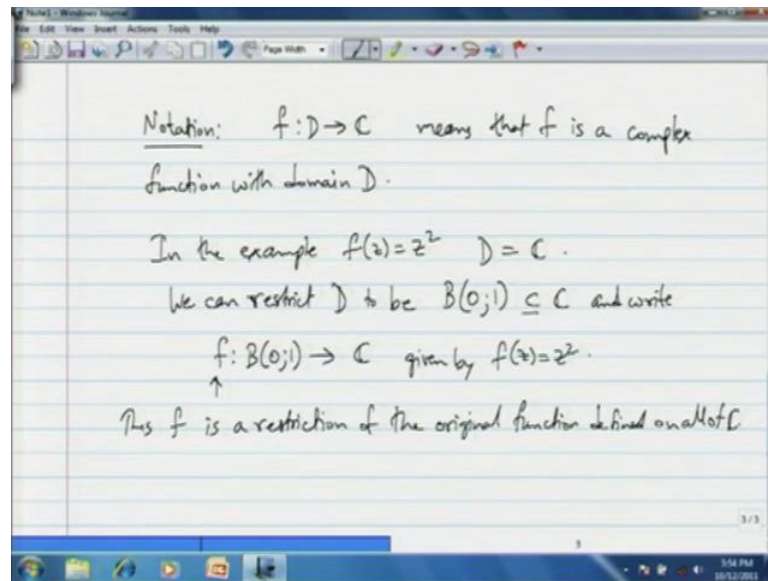 Note1 - Windows Journal
File Edit View Insert Actions Tools Help
Page Width
Notation: f : D → ℂ means that f is a complex
function with domain D.
In the example f(z) = z² D = ℂ.
We can restrict D to be B(0;1) ⊆ ℂ and write
f : B(0;1) → ℂ given by f(z) = z².
↑
This f is a restriction of the original function defined on all of ℂ
3/3
3
3:54 PM
10/12/2011